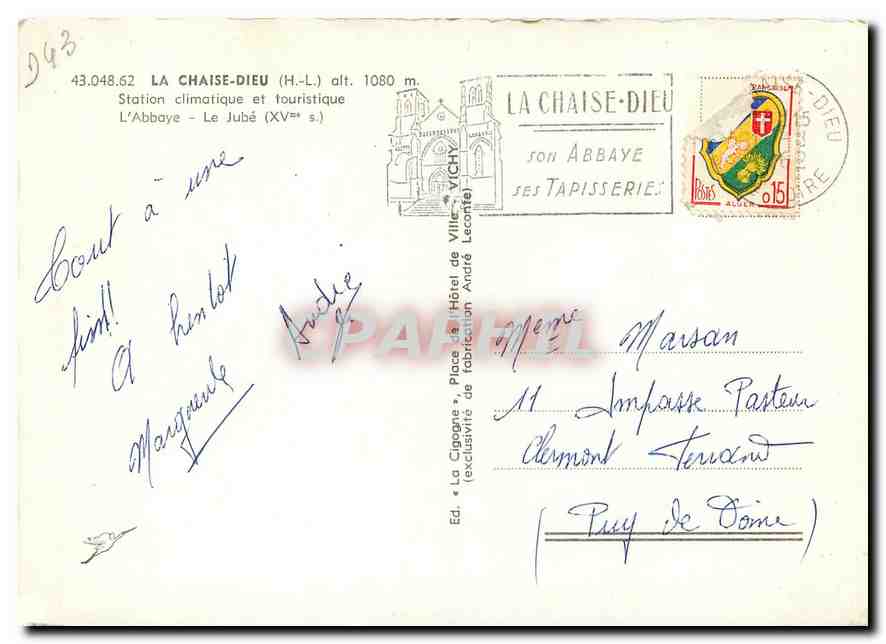 D43
43.048.62 LA CHAISE-DIEU (H.-L.) alt. 1080 m.
Station climatique et touristique
L'Abbaye - Le Jubé (XVme s.)
LA CHAISE-DIEU
SON ABBAYE
SES TAPISSERIES
POSTES
ALGER
0,15
Tout à une
fin!!
A bientot
Marguerite
André
Ed. « La Cigogne », Place de l'Hôtel de Ville - VICHY
(exclusivité de fabrication André Leconte)
CPAPHIL
Meme Marsan
11 Impasse Pasteur
Clermont Ferrand
(Puy de Dome)